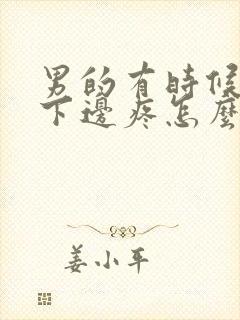 男的有時候
下邊疼怎麼
姜小平